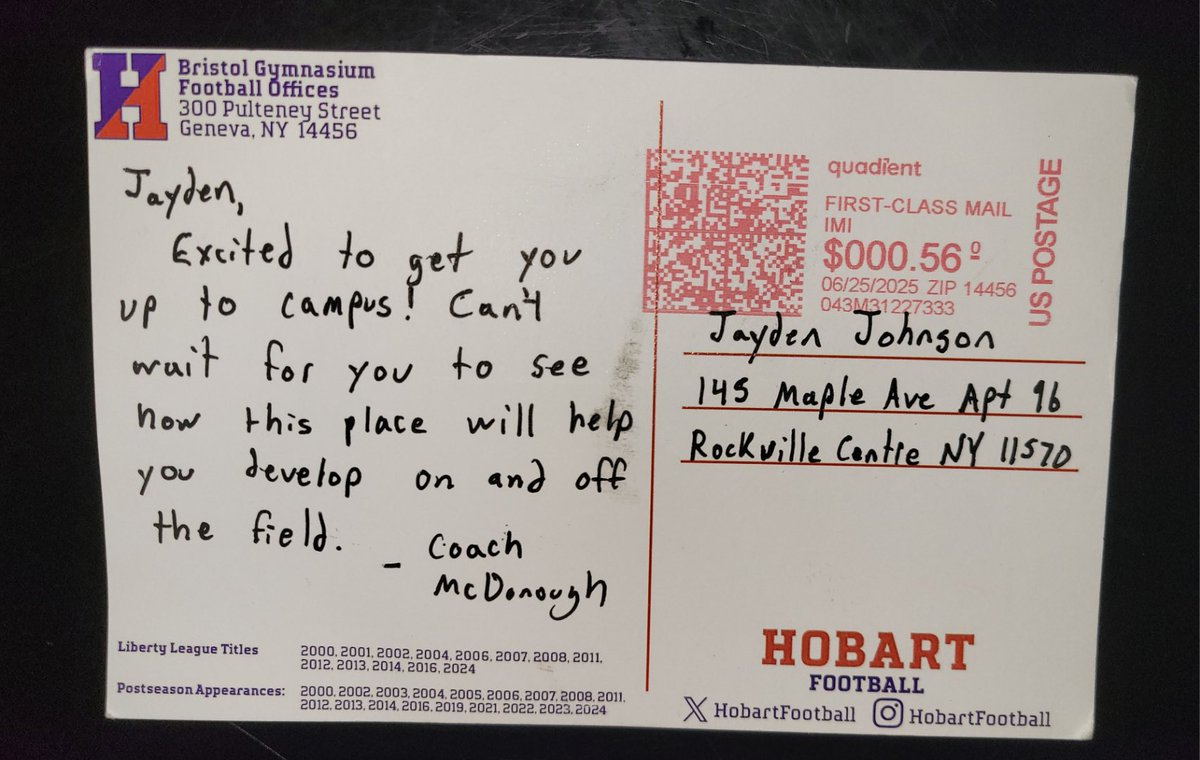 H
Bristol Gymnasium
Football Offices
300 Pulteney Street
Geneva, NY 14456
Jayden,
Excited to get you
up to campus! Can't
wait for you to see
how this place will help
you develop on and off
the field.
- Coach
McDonough
Liberty League Titles
2000, 2001, 2002, 2004, 2006, 2007, 2008, 2011,
2012, 2013, 2014, 2016, 2024
Postseason Appearances:
2000, 2002, 2003, 2004, 2005, 2006, 2007, 2008, 2011,
2012, 2013, 2014, 2016, 2019, 2021, 2022, 2023, 2024
quadient
FIRST-CLASS MAIL
IMI
$000.56⁰
06/25/2025 ZIP 14456
043M31227333
US POSTAGE
Jayden Johnson
145 Maple Ave Apt 96
Rockville Centre NY 11570
HOBART
FOOTBALL
X HobartFootball HobartFootball